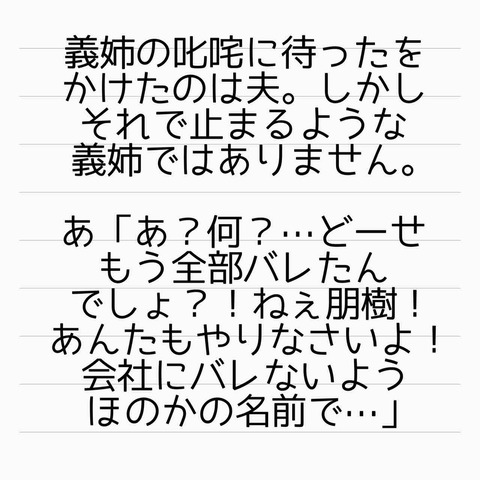 義姉の叱咤に待ったを
かけたのは夫。しかし
それで止まるような
義姉ではありません。
あ「あ？何？…どーせ
もう全部バレたん
でしょ？！ねぇ朋樹！
あんたもやりなさいよ！
会社にバレないよう
ほのかの名前で…」